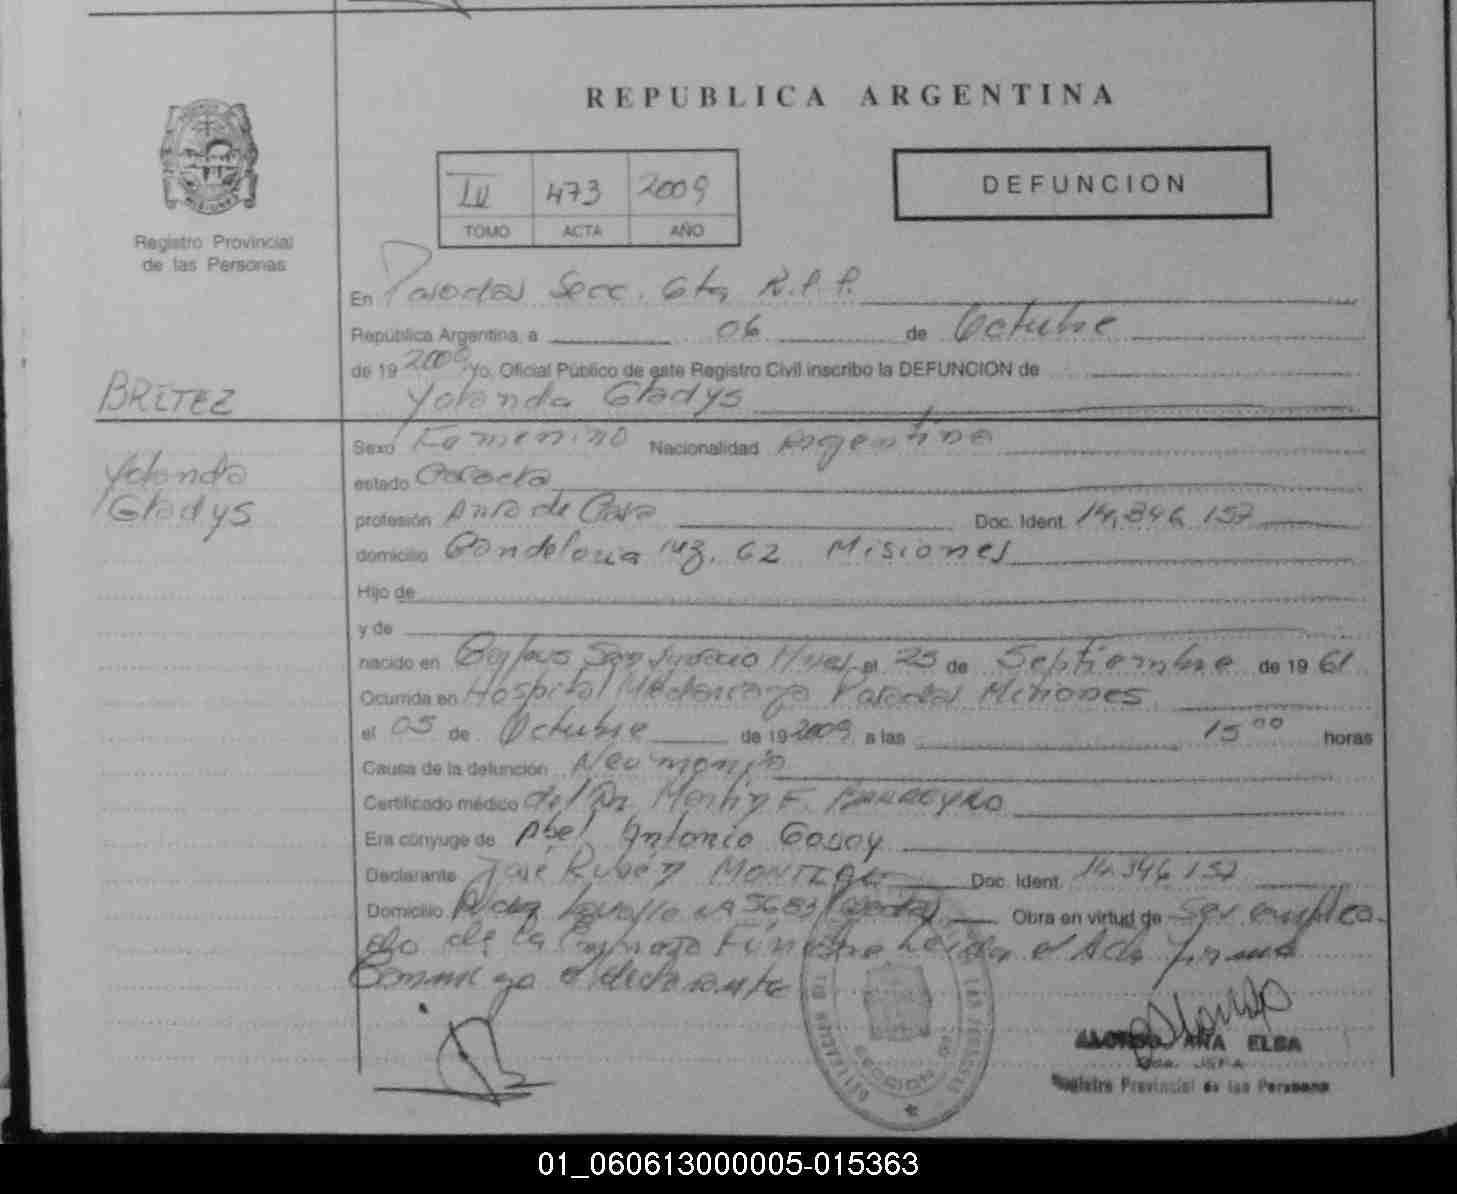 REPUBLICA ARGENTINA
DEFUNCION
III 473 2009
TOMO ACTA AÑO
Registro Provincial
de las Personas
En Posadas Secc. 6ta R.P.P.
República Argentina, a 06 de Octubre
de 19 2009, Yo, Oficial Público de este Registro Civil inscribo la DEFUNCION de
BRITEZ
Yolanda Gladys
Yolanda
Gladys
Sexo Femenino Nacionalidad Argentina
estado Casada
profesión Ama de Casa Doc. Ident. 14,346,152
domicilio Candelaria mz. 62 Misiones
Hijo de
y de
nacido en San Ignacio Mnes el 25 de Septiembre de 19 61
Ocurrida en Hospital Madariaga Posadas Misiones
el 05 de Octubre de 19 2009 a las 15 00 horas
Causa de la defunción Neumonía
Certificado médico del Dr. Martin F. BARREYRO
Era cónyuge de Abel Antonio Godoy
Declarante José Rubén MONTIEL Doc. Ident. 14.346.152
Domicilio Avda Lavalle Nº 5683 Obra en virtud de Ser emplea
do de la Empresa Fúnebre Leida el Acta firma
Conmigo el declarante
ANA ELSA
JEFA
Registro Provincial de las Personas
SECCION
01_060613000005-015363